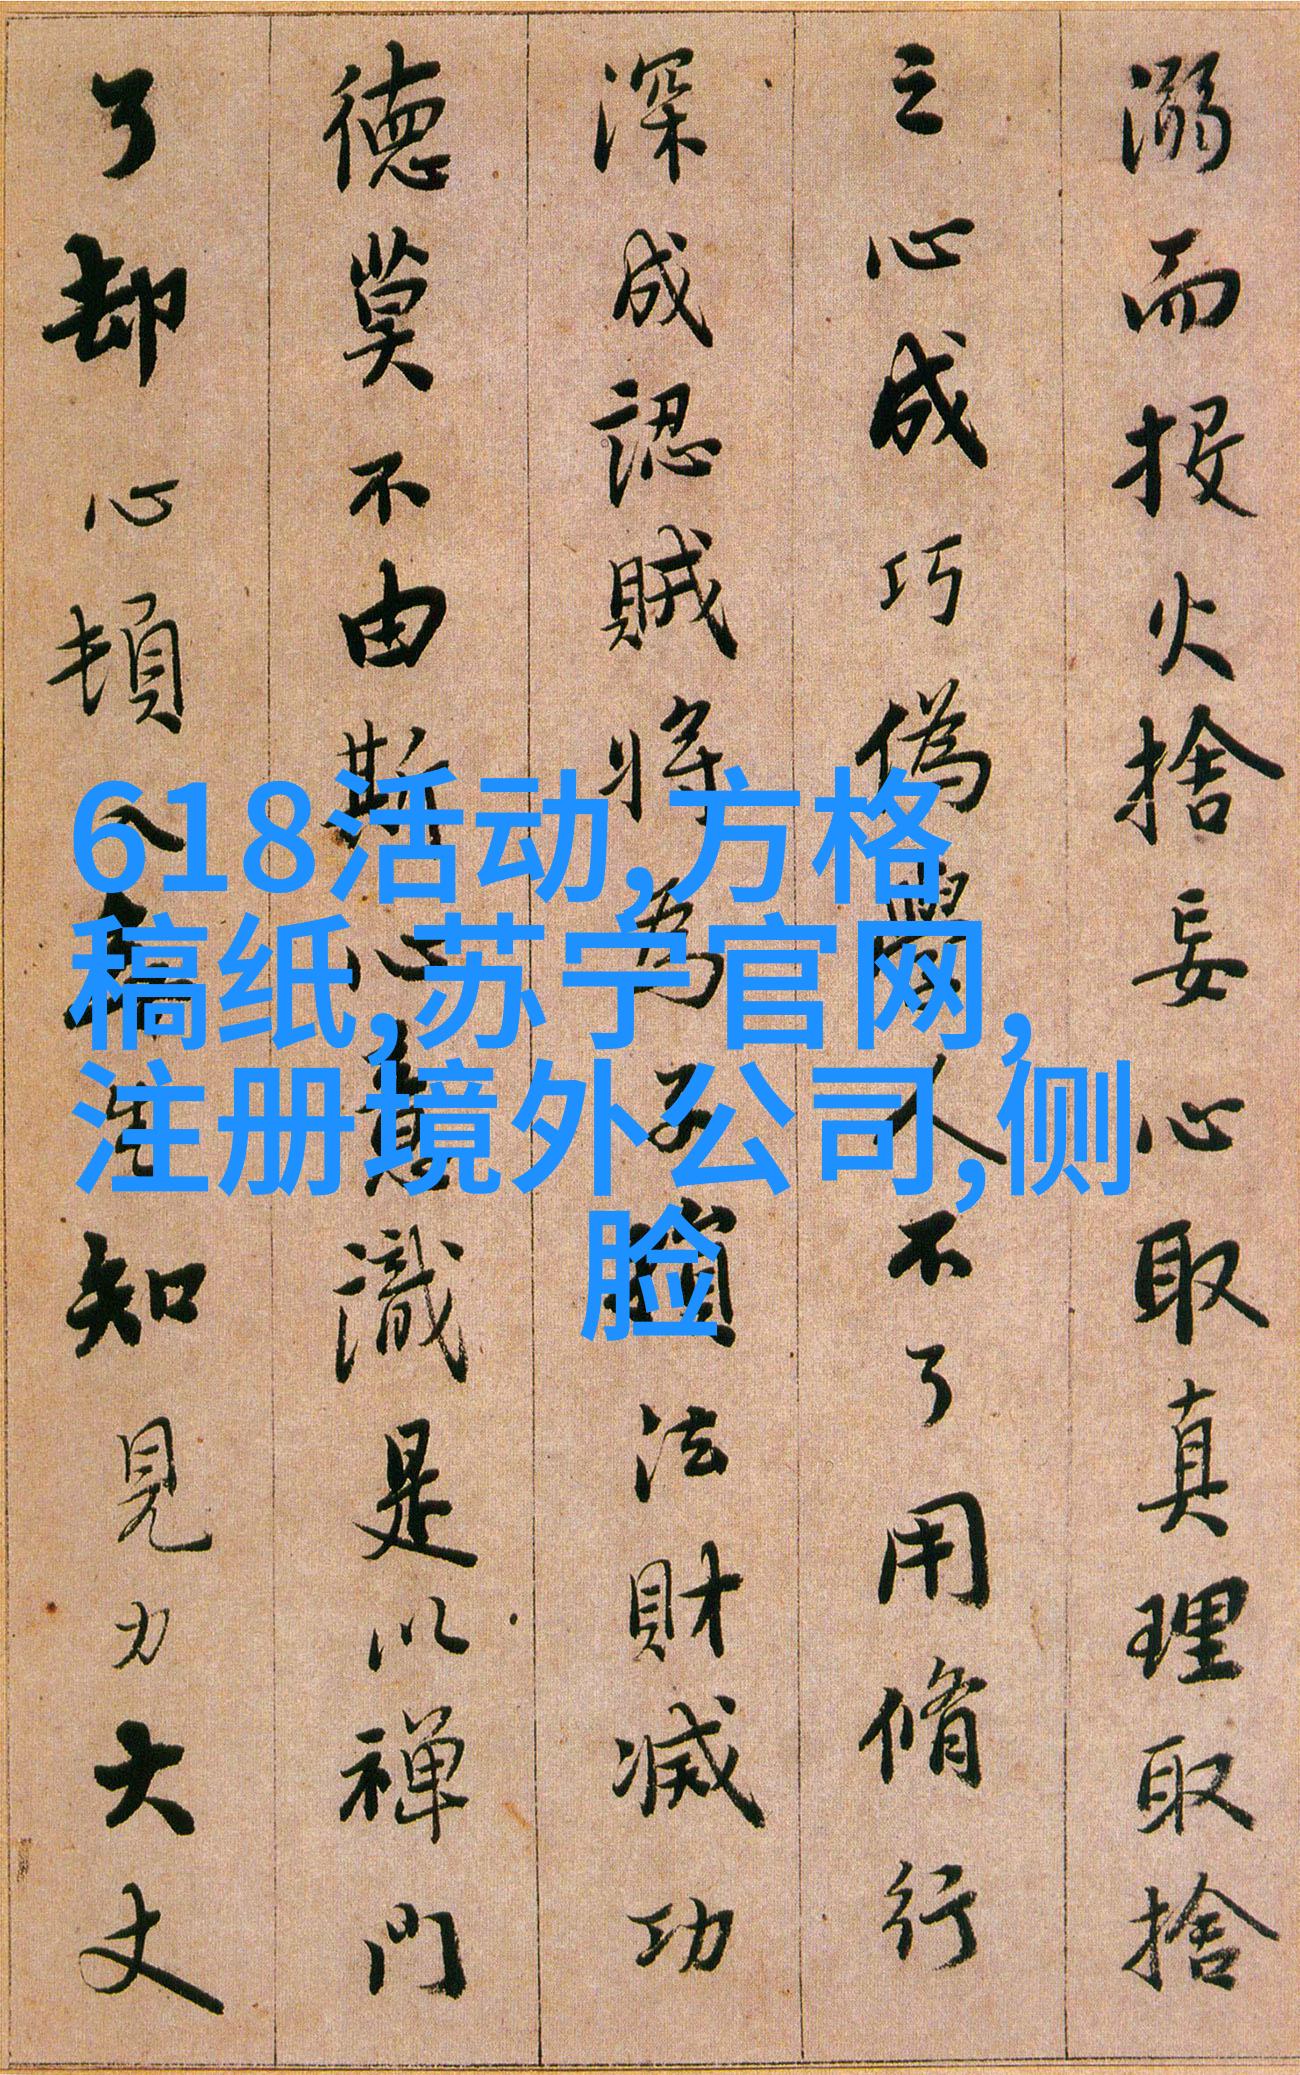 溺而投火捨妄心取真理取捨
之心成巧偽學人不了用脩行
深成認賊將為子損法財滅功
德莫不由斯心意識是以禪門
了却心頓入無生知見力大丈
618活动,方格
稿纸,苏宁官网,
注册境外公司,侧
脸